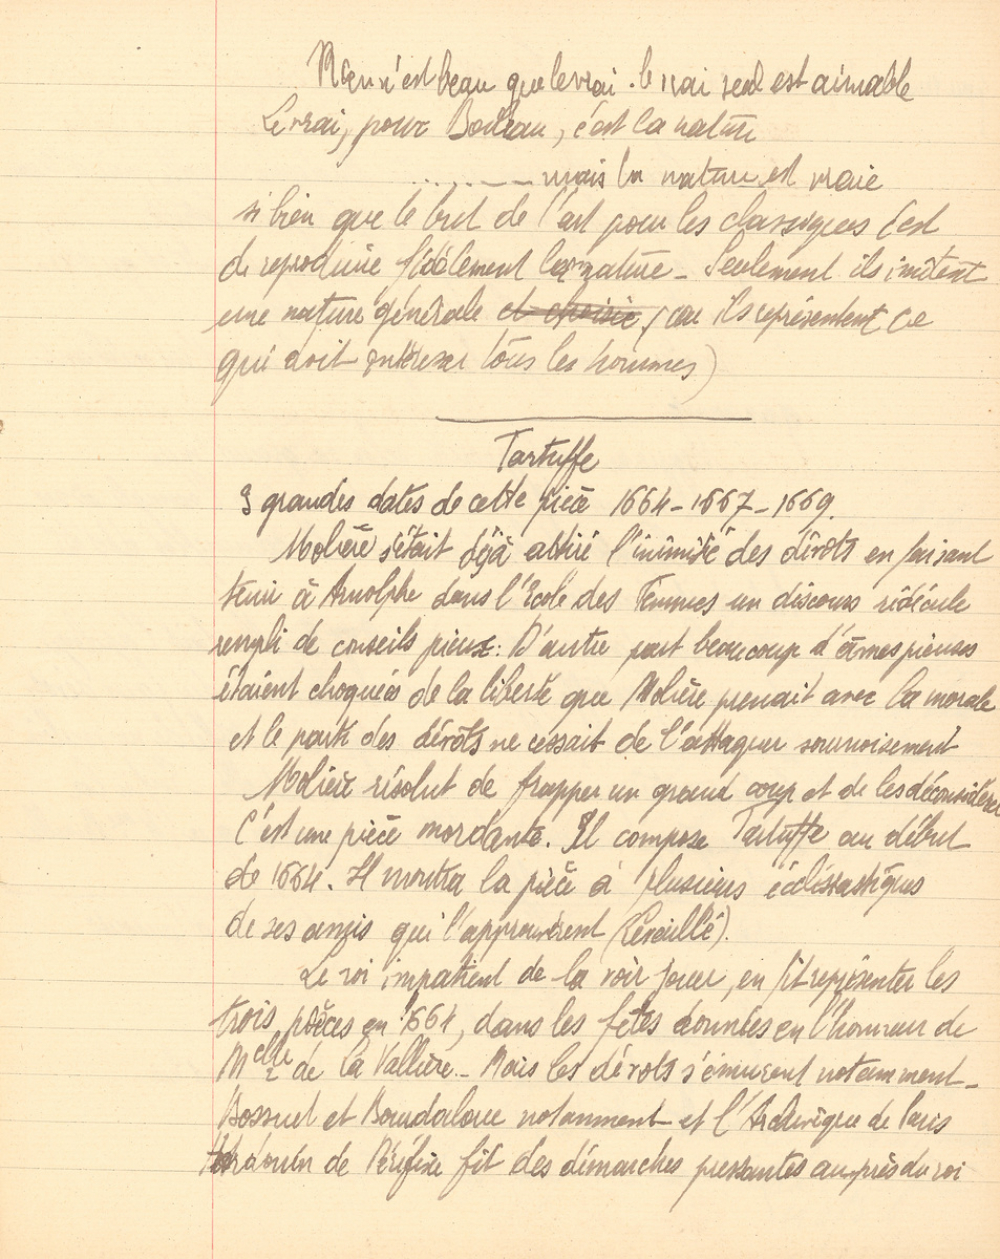 Rien n'est beau que le vrai. le vrai seul est aimable
Le vrai, pour Boileau, c'est la nature
......--- mais la nature est vraie
si bien que le but de l'art pour les classiques c'est
de reproduire fidèlement la nature - Seulement ils imitent
une nature générale et choisie, (car ils représentent ce
qui doit intéresser tous les hommes)
Tartuffe
3 grandes dates de cette pièce 1664-1667-1669.
Molière s'était déjà attiré l'inimitié des dévots en faisant
tenir à Arnolphe dans l'Ecole des Femmes un discours ridicule
rempli de conseils pieux. D'autre part beaucoup d'âmes pieuses
étaient choquées de la liberté que Molière prenait avec la morale
et le parti des dévots ne cessait de l'attaquer sournoisement
Molière résolut de frapper un grand coup et de les déconsidérer
C'est une pièce mordante. Il compose Tartuffe au début
de 1664. Il montra la pièce à plusieurs écclésiastiques
de ses amis qui l'approuvèrent
Le roi impatient de la voir jouer, en fit représenter les
trois pièces en 1664, dans les fêtes données en l'honneur de
Melle de la Vallière - Mais les dévots s'émurent notamment -
Bossuet et Bourdaloue notamment et l'Archevêque de Paris
Hardouin de Péréfixe fit des démarches pressantes auprès du roi